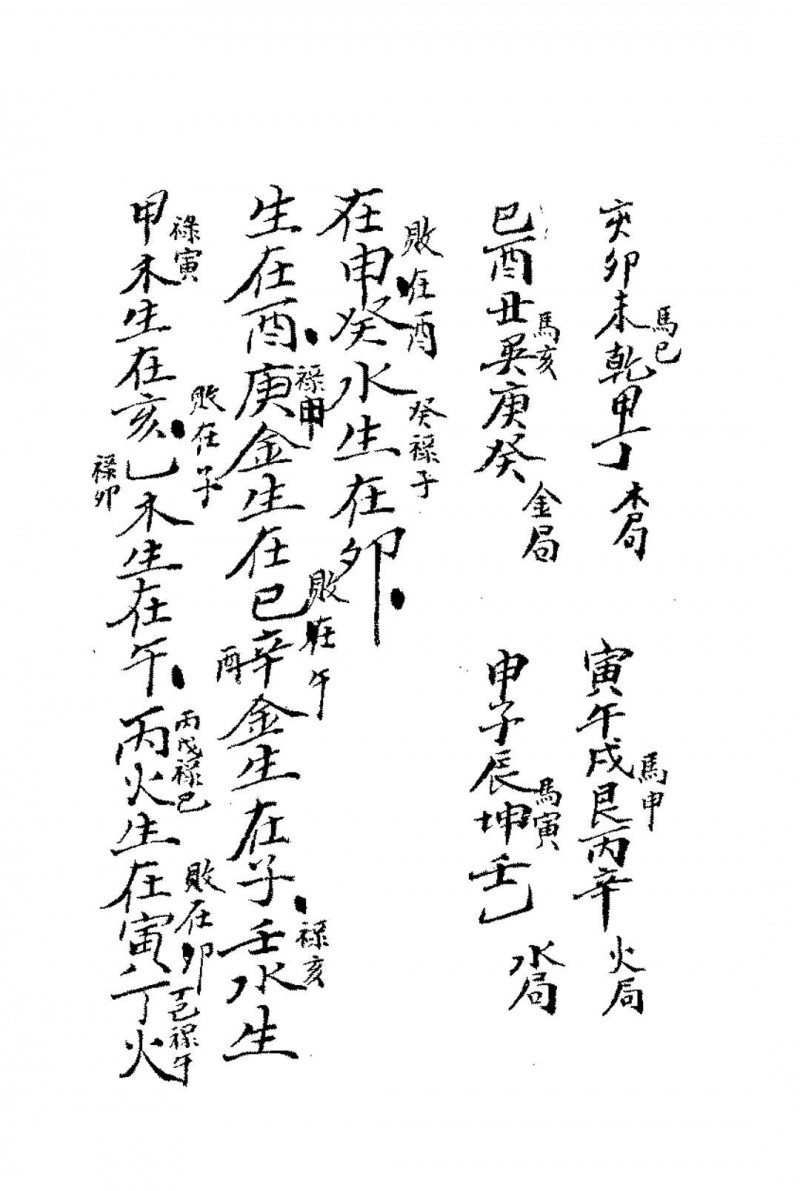 甲木生在亥乙木生在午丙火生在寅丁火
祿寅
敗在子
祿卯
丙戊祿巳
敗在卯
丁己祿午
生在酉庚金生在巳辛金生在子壬水生
祿申
敗在午
酉
祿亥
在申癸水生在卯
敗在酉
癸祿子
巳酉丑巽庚癸
馬亥
金局
申子辰坤壬乙
馬寅
水局
亥卯未乾甲丁
馬巳
木局
寅午戌艮丙辛
馬申
火局